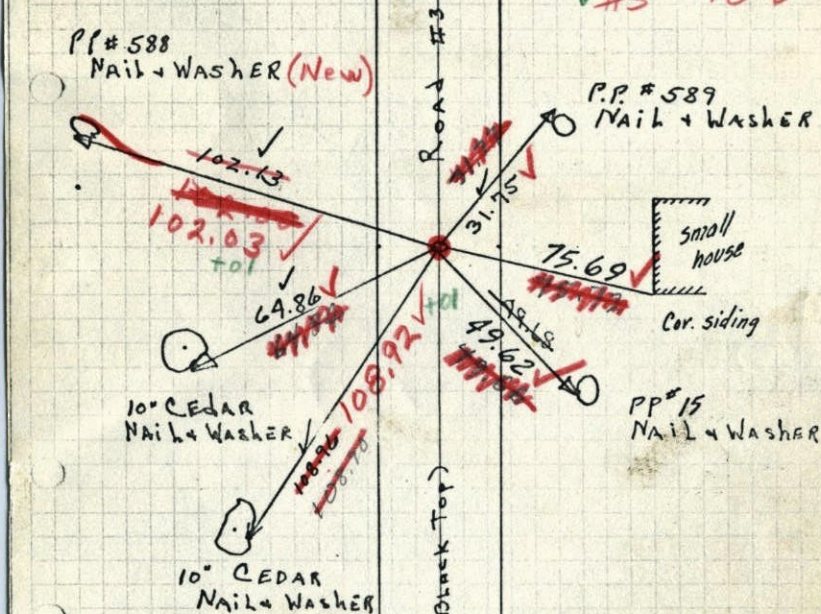 PP # 588
Nail & Washer (New)
Road #3
P.P. # 589
Nail & Washer
102.13
102.03
+01
31.75
small
house
75.69
Cor. siding
64.86
+01
49.68
49.62
108.92
10" Cedar
Nail & Washer
PP # 15
Nail & Washer
108.96
108.90
10" Cedar
Nail & Washer
Black Top)